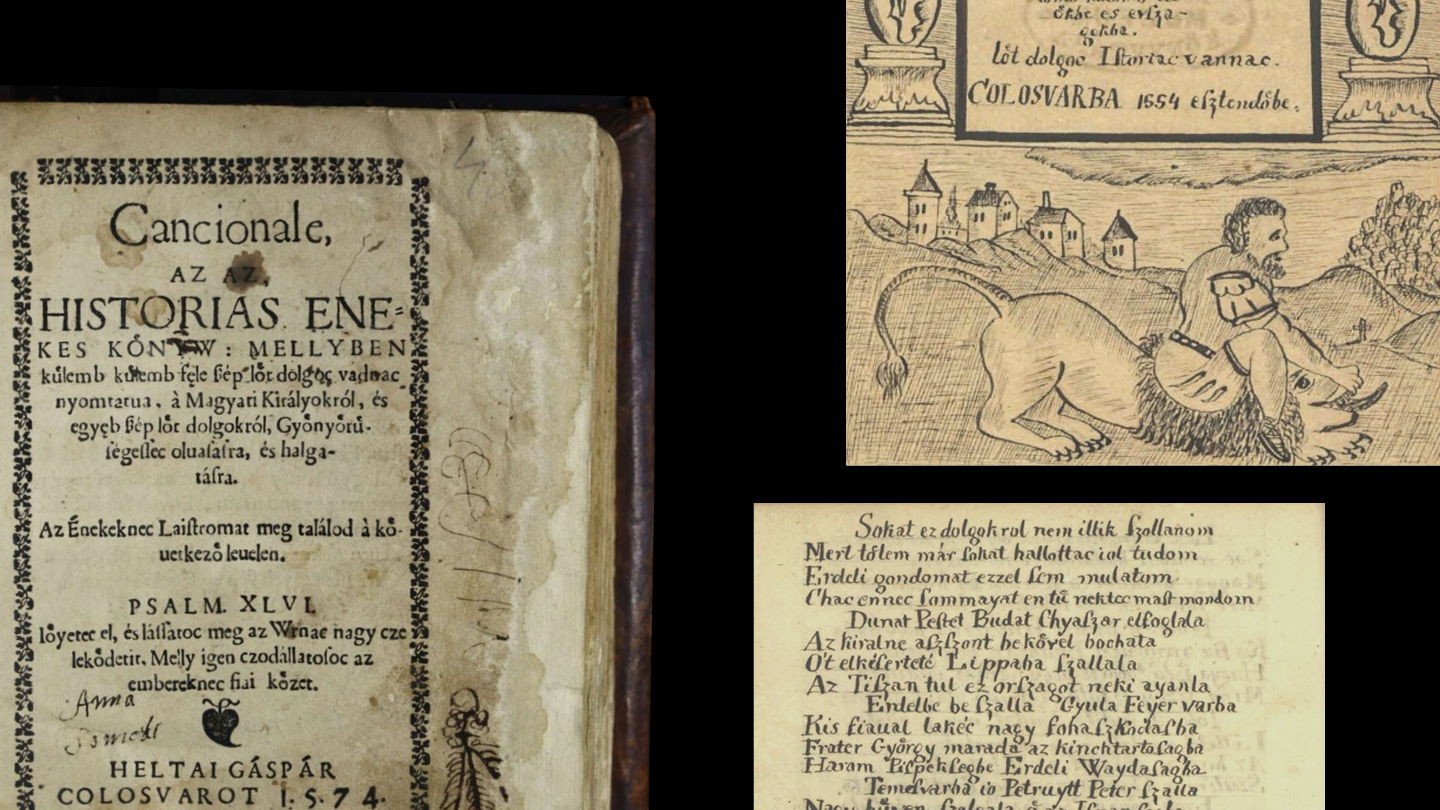 Cancionale,
AZ AZ,
HISTORIAS ENE=
KES KŐNYW: MELLYBEN
kűlemb kűlemb féle ſép lőt dolgoc vadnac
nyomtatua, à Magyari Királyokról, és
egyęb ſép lőt dolgokról, Győnyőrű-
ſégeſſec oluaſaſra, és halga-
táſra.
Az Énekeknec Laiſtromat meg talalod à kő-
uetkező leuelen.
PSALM. XLVI.
Iőyetec el, és láſſatoc meg az Wrnac nagy cze
lekődetit. Melly igen czodállatoſoc az
embereknec fiai kőzet.
Anna
HELTAI GÁSPÁR
COLOSVAROT 1.5.74.
őkbe es orſza-
gokba.
lőt dolgoc Iſtoriac vannac.
COLOSVARBA 1554 eſztendőbe.
Sokat ez dolgokrol nem illik ſzollanom
Mert tőlem már ſokat hallottac iol tudom
Erdeli gondomat ezzel ſem mulatom
Chac ennec ſommayat en tű nektec maſt mondom
Dunat Peſtet Budat Chyaſzar elfoglala
Az kiralne aſſzont be kővel bochata
Ot elkiſertete Lippaba ſzallala
Az Tiſzan tul ez orſzagot neki ayanla
Erdelbe be ſzalla Gyula Feyer varba
Kis fiaual lakéc nagy fohaſzkodaſba
Frater Győrgy marada az kinchtartoſagba
Haram Piſpekſegbe Erdeli Waydaſagba
Temeſvarba io Petruytt Peter ſzalla